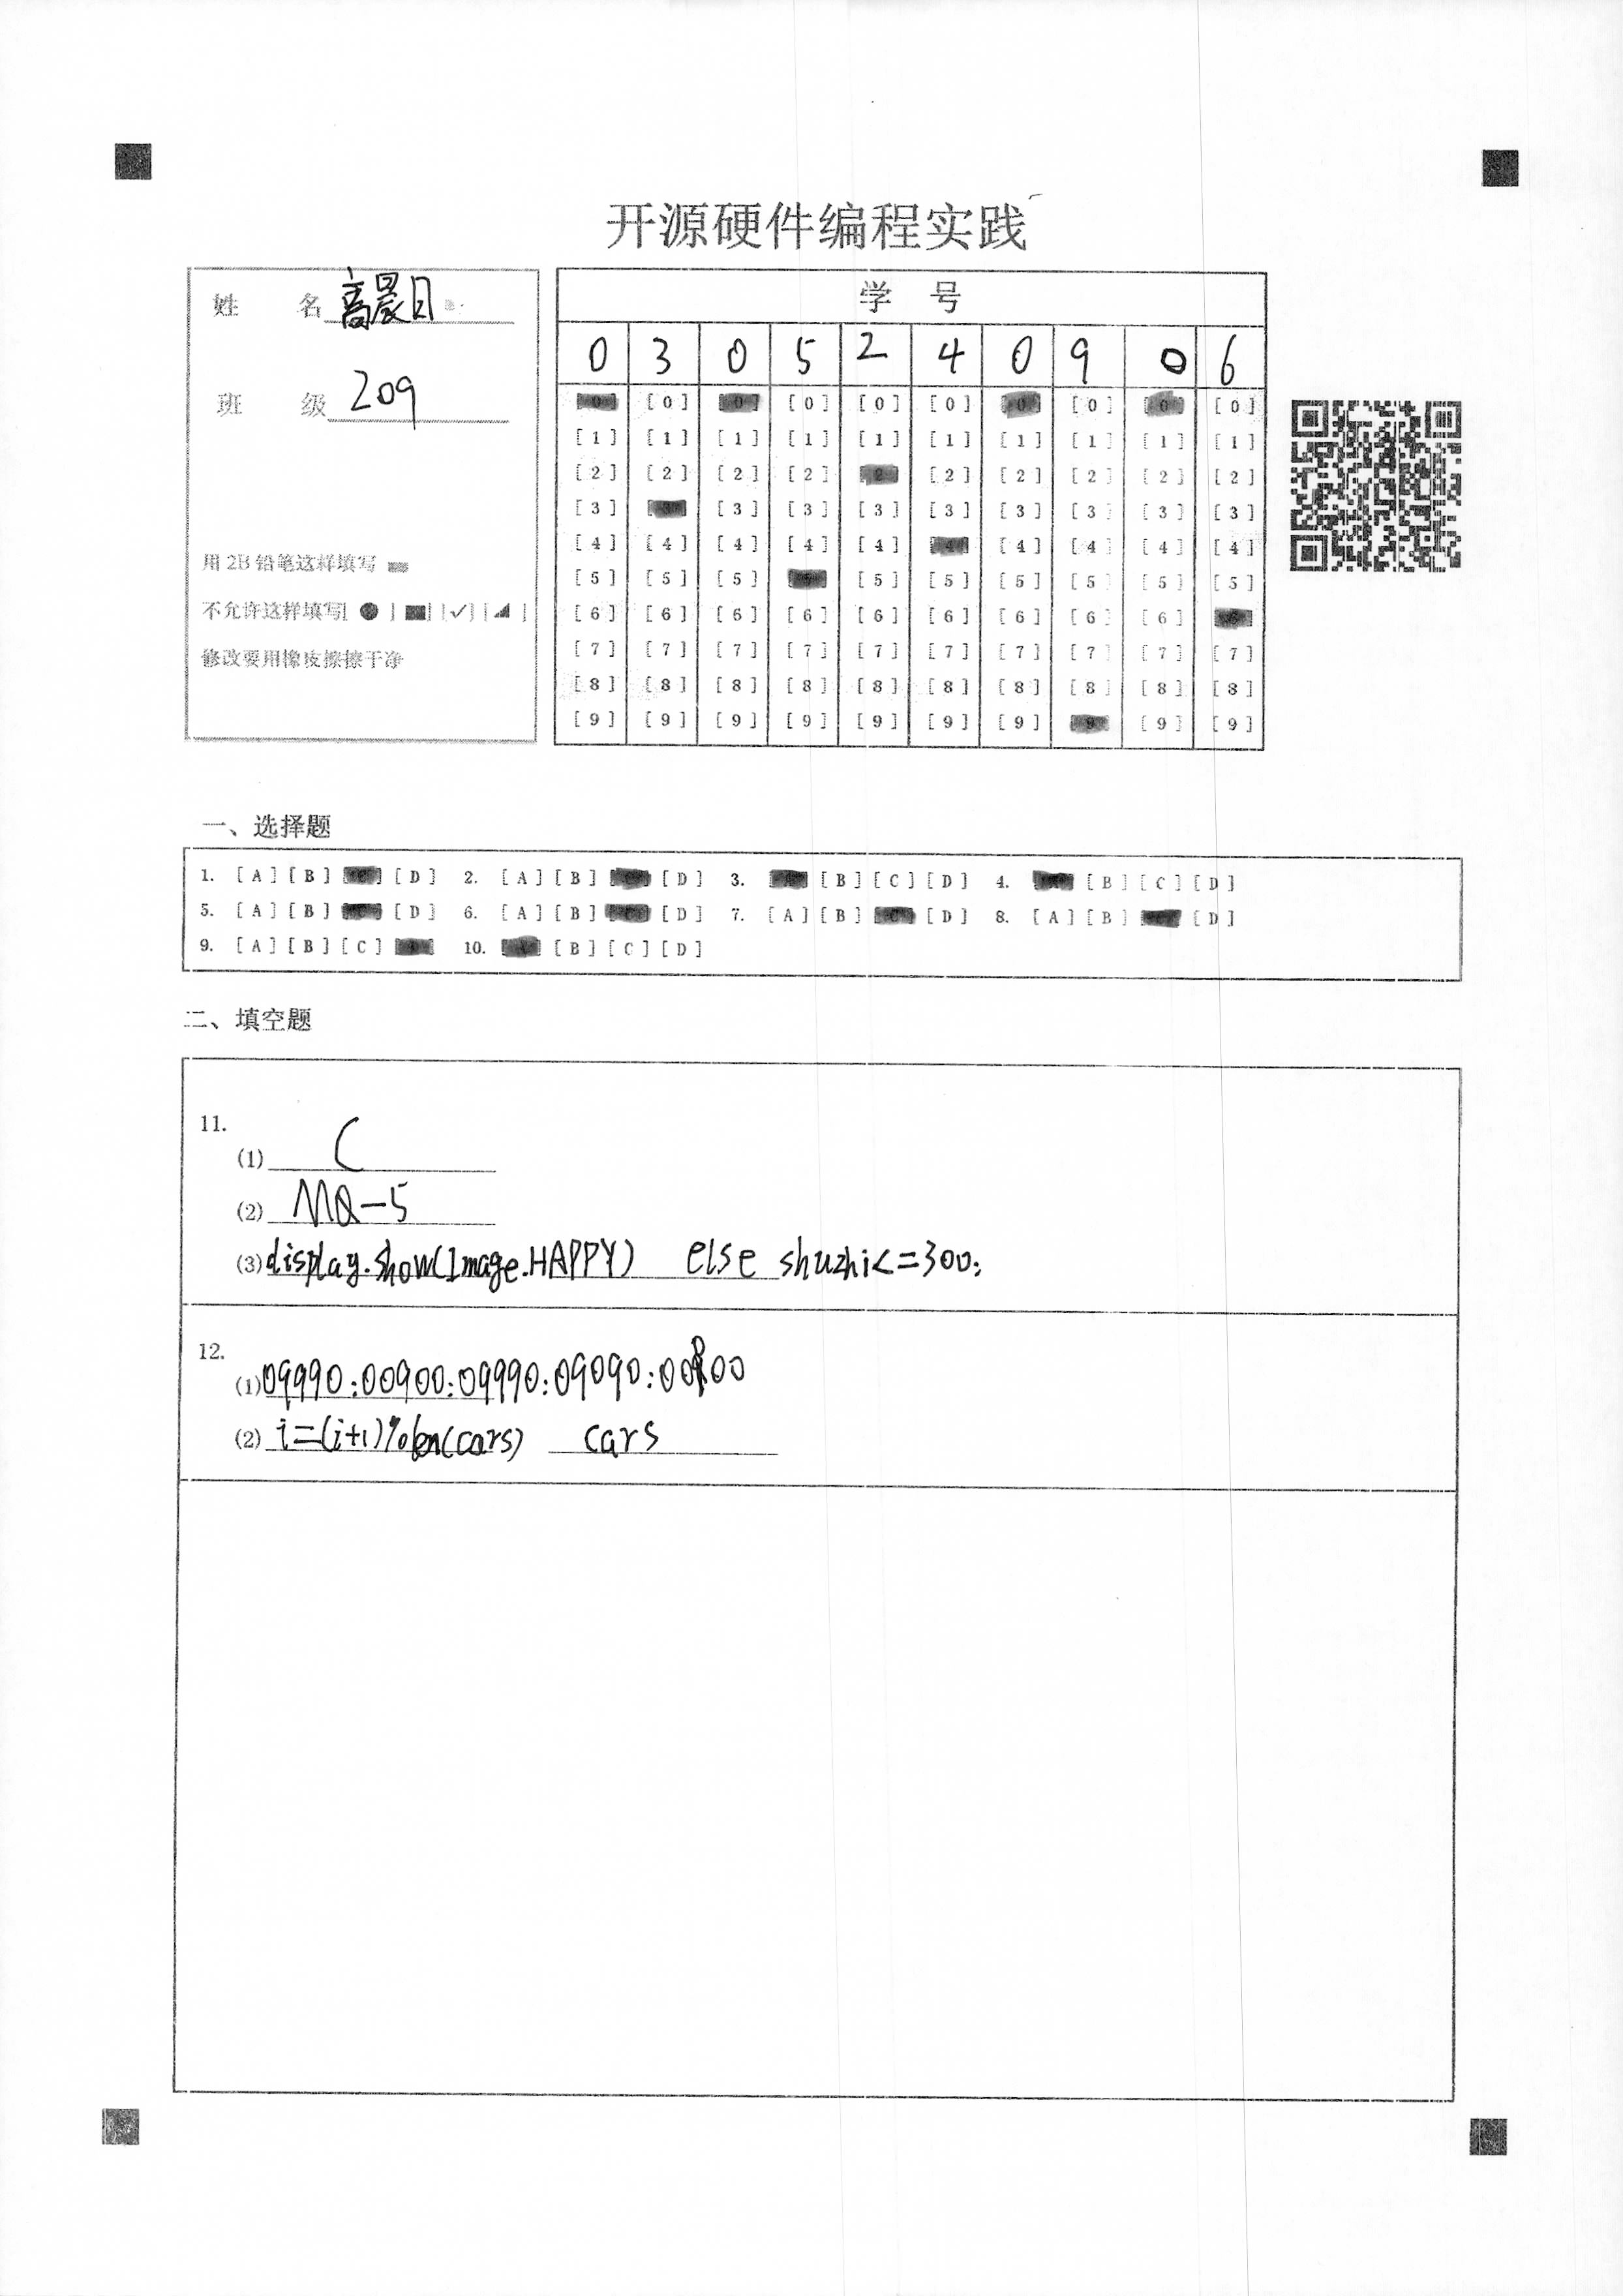 开源硬件编程实践
姓 名 高晨日
班 级 209
用 2B 铅笔这样填写
不允许这样填写[ ● ] [■] [✓] [◢ ]
修改要用橡皮擦擦干净
学 号
0 3 0 5 2 4 0 9 0 6
[0] [0] [0] [0] [0] [0] [0] [0] [0] [0]
[1] [1] [1] [1] [1] [1] [1] [1] [1] [1]
[2] [2] [2] [2] [2] [2] [2] [2] [2] [2]
[3] [3] [3] [3] [3] [3] [3] [3] [3] [3]
[4] [4] [4] [4] [4] [4] [4] [4] [4] [4]
[5] [5] [5] [5] [5] [5] [5] [5] [5] [5]
[6] [6] [6] [6] [6] [6] [6] [6] [6] [6]
[7] [7] [7] [7] [7] [7] [7] [7] [7] [7]
[8] [8] [8] [8] [8] [8] [8] [8] [8] [8]
[9] [9] [9] [9] [9] [9] [9] [9] [9] [9]
一、选择题
1. [A] [B] [C] [D] 2. [A] [B] [C] [D] 3. [A] [B] [C] [D] 4. [A] [B] [C] [D]
5. [A] [B] [C] [D] 6. [A] [B] [C] [D] 7. [A] [B] [C] [D] 8. [A] [B] [C] [D]
9. [A] [B] [C] [D] 10. [A] [B] [C] [D]
二、填空题
11.
(1) C
(2) MQ-5
(3) display.show(Image.HAPPY) else shuzhi<=300:
12.
(1) 09990:00900:09990:09090:00900
(2) i=(i+1)%len(cars) cars